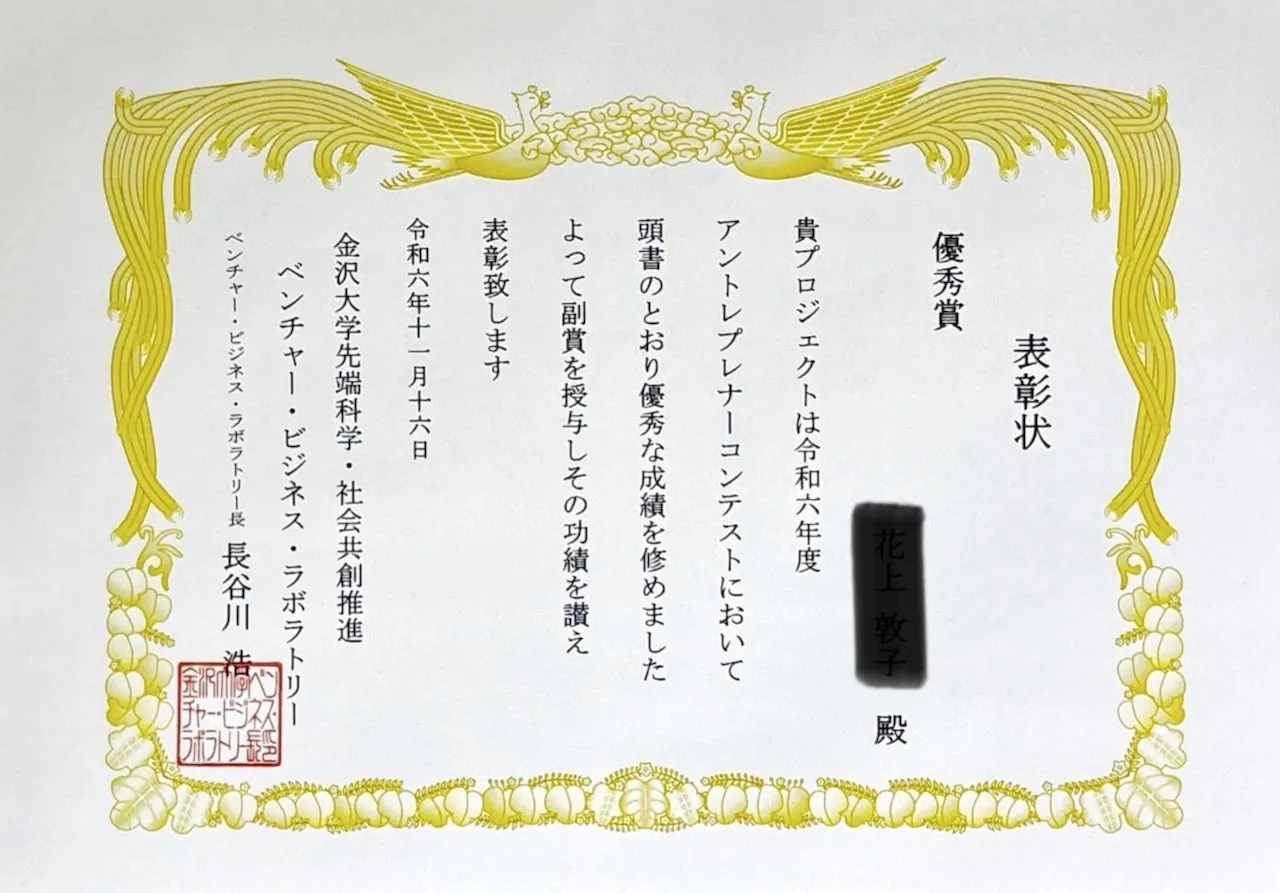 表彰状
優秀賞
殿
貴プロジェクトは令和六年度
アントレプレナーコンテストにおいて
頭書のとおり優秀な成績を修めました
よって副賞を授与しその功績を讃え
表彰致します
令和六年十一月十六日
金沢大学先端科学・社会共創推進
ベンチャー・ビジネス・ラボラトリー
ベンチャー・ビジネス・ラボラトリー長 長谷川 浩
金沢大学ベン
チャー・ビジネス・
ラボラトリー長印